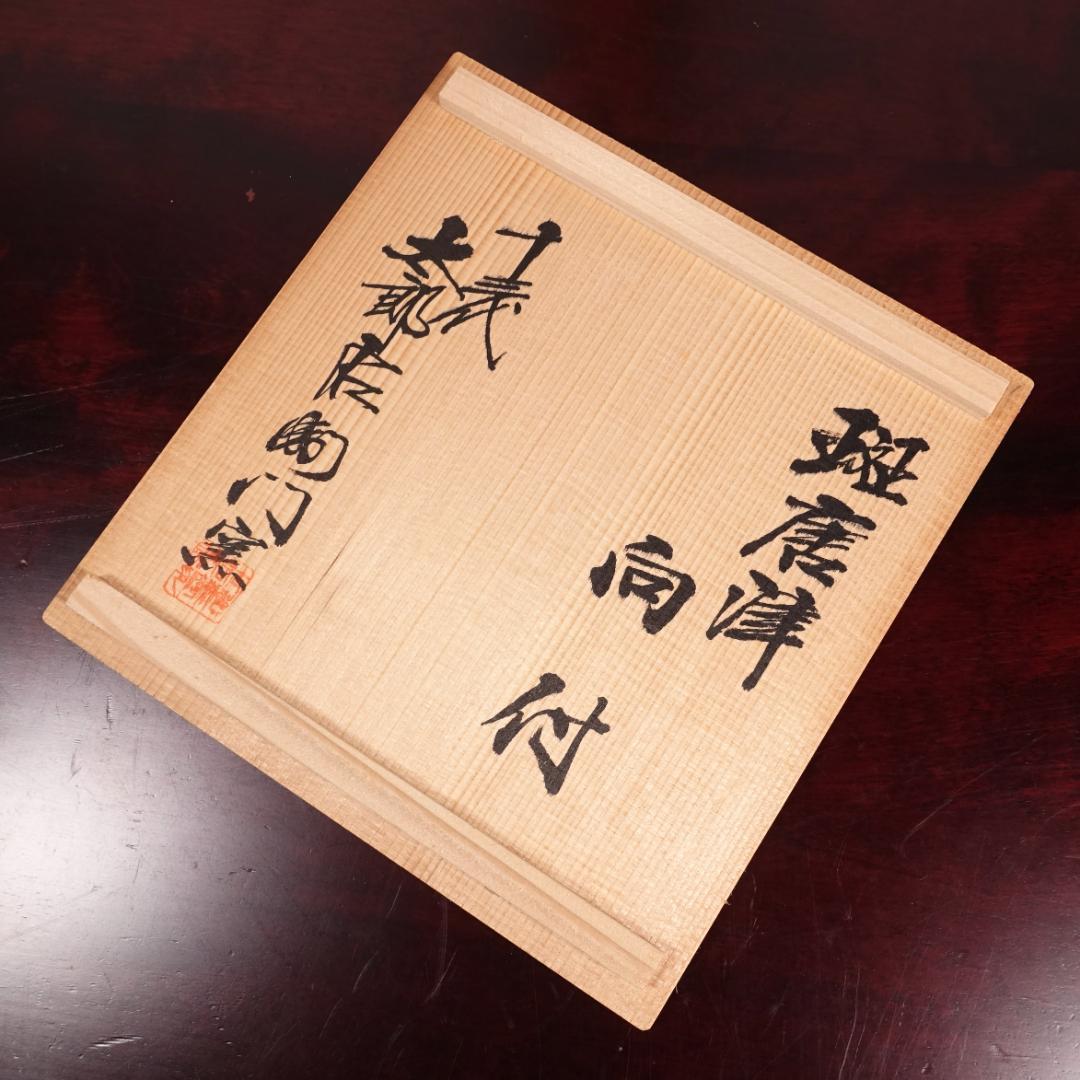 斑唐津
向付
十三代
太郎右衛門窯